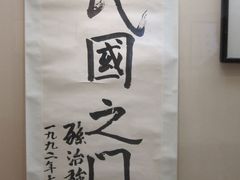 民國之門
孫治
一九九二年